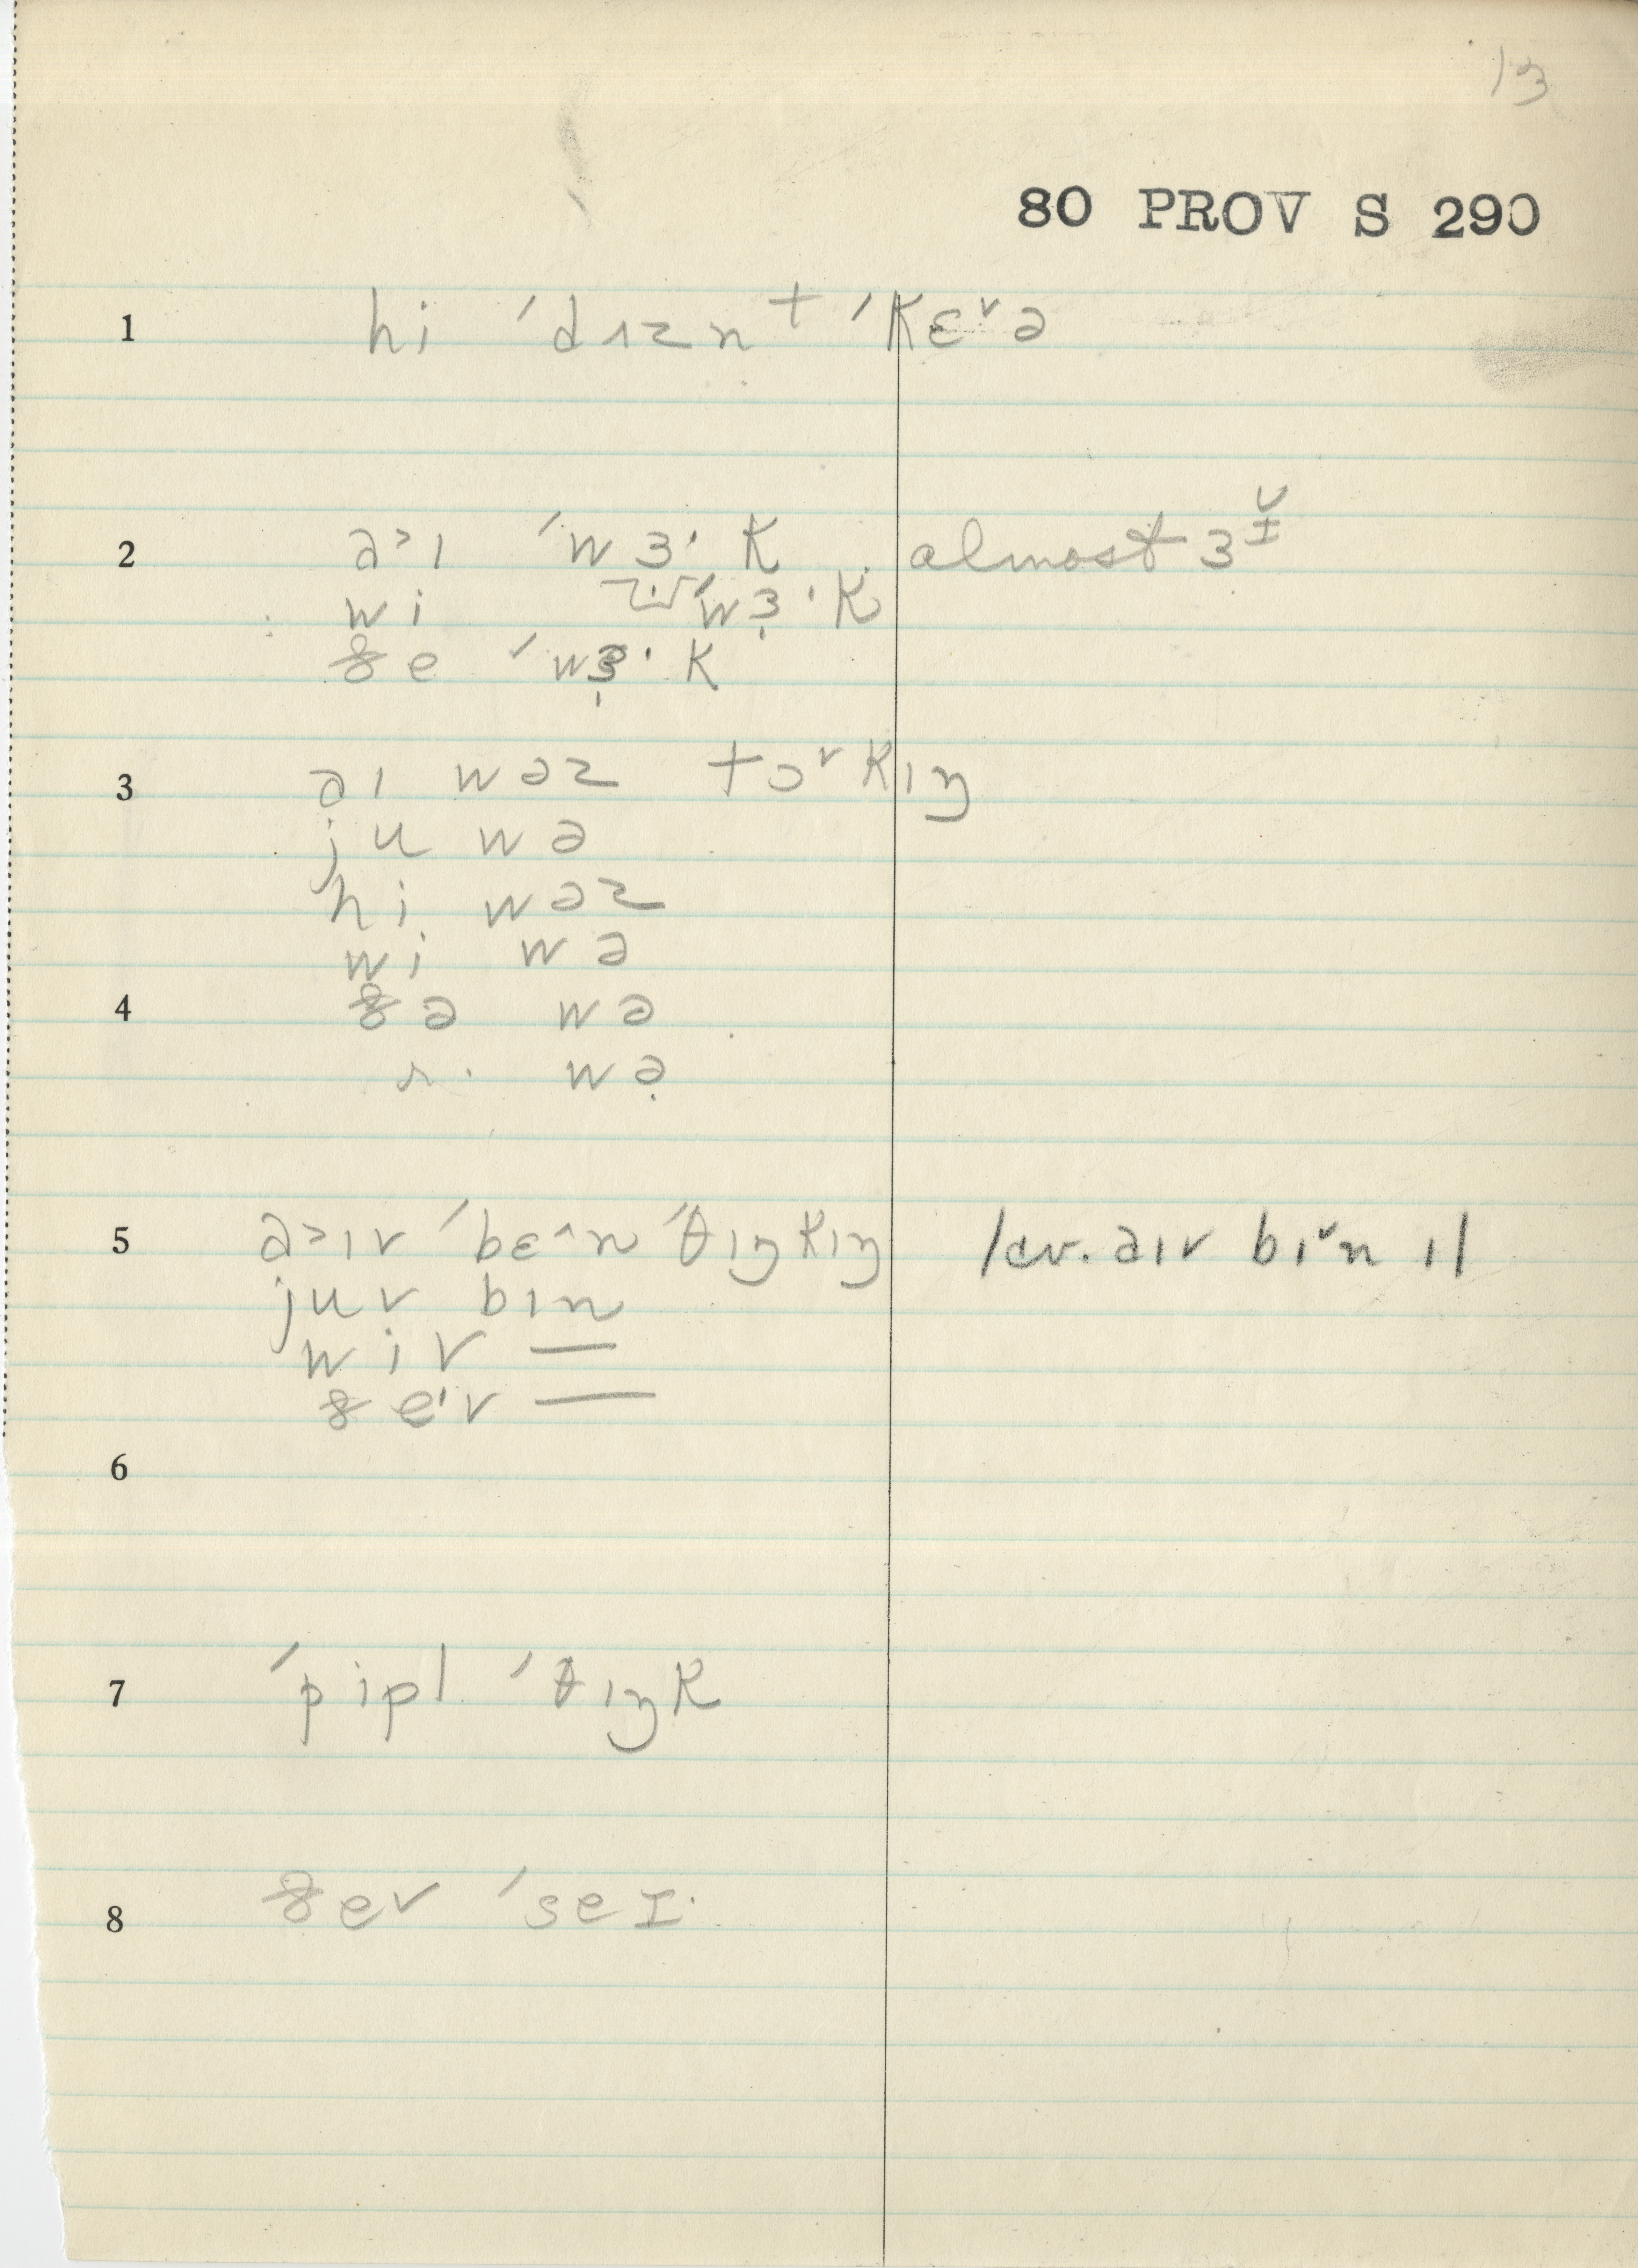 13
80 PROV S 290
1 hi ˈdʌznt ˈkɛ˅ə
2 a˃ɪ ˈwɜ·k almost ɜɪ˅
wi ˈwɜ̣·k
ðe ˈwɜ̣·k
3 aɪ wəz tɔ˅kɪŋ
ju wə
hi wəz
wi wə
4 ðə wə
wə̣
5 a˃ɪv ˈbɛ˄n ˈθɪŋkɪŋ /cv. aɪv bɪ˅n ɪ/
juv bɪn
wiv —
ðe'v —
6
7 ˈpipl ˈθɪŋk
8 ðev ˈseɪ·